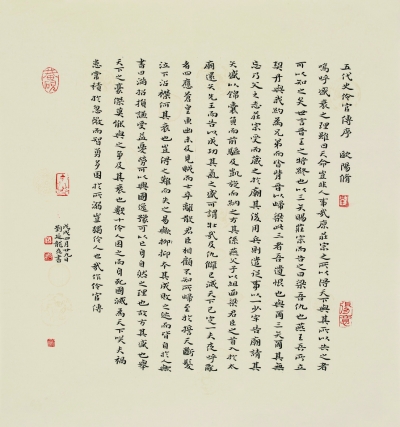 五代史伶官傳序 歐陽脩
嗚呼盛衰之理雖曰天命豈非人事哉原莊宗之所以得天下與其所以失之者
可以知之矣世言晉王之將終也以三矢賜莊宗而告之曰梁吾仇也燕王吾所立
契丹與我約為兄弟而皆背晉以歸梁此三者吾遺恨也與爾三矢爾其無
忘乃父之志莊宗受而藏之於廟其後用兵則遣從事以一少牢告廟請其
矢盛以錦囊負而前驅及凱旋而納之方其係燕父子以組函梁君臣之首入於太
廟還矢先王而告以成功其氣之盛可謂壯哉及仇讎已滅天下已定一夫夜呼亂
者四應蒼皇東出未及見賊而士卒離散君臣相顧不知所歸至於誓天斷髮
泣下沾襟何其衰也豈得之難而失之易歟抑本其成敗之迹而皆自於人歟
書曰滿招損謙受益憂勞可以興國逸豫可以亡身自然之理也故方其盛也舉
天下之豪傑莫能與之爭及其衰也數十伶人困之而身死國滅為天下笑夫禍
患常積於忽微而智勇多困於所溺豈獨伶人也哉作伶官傳